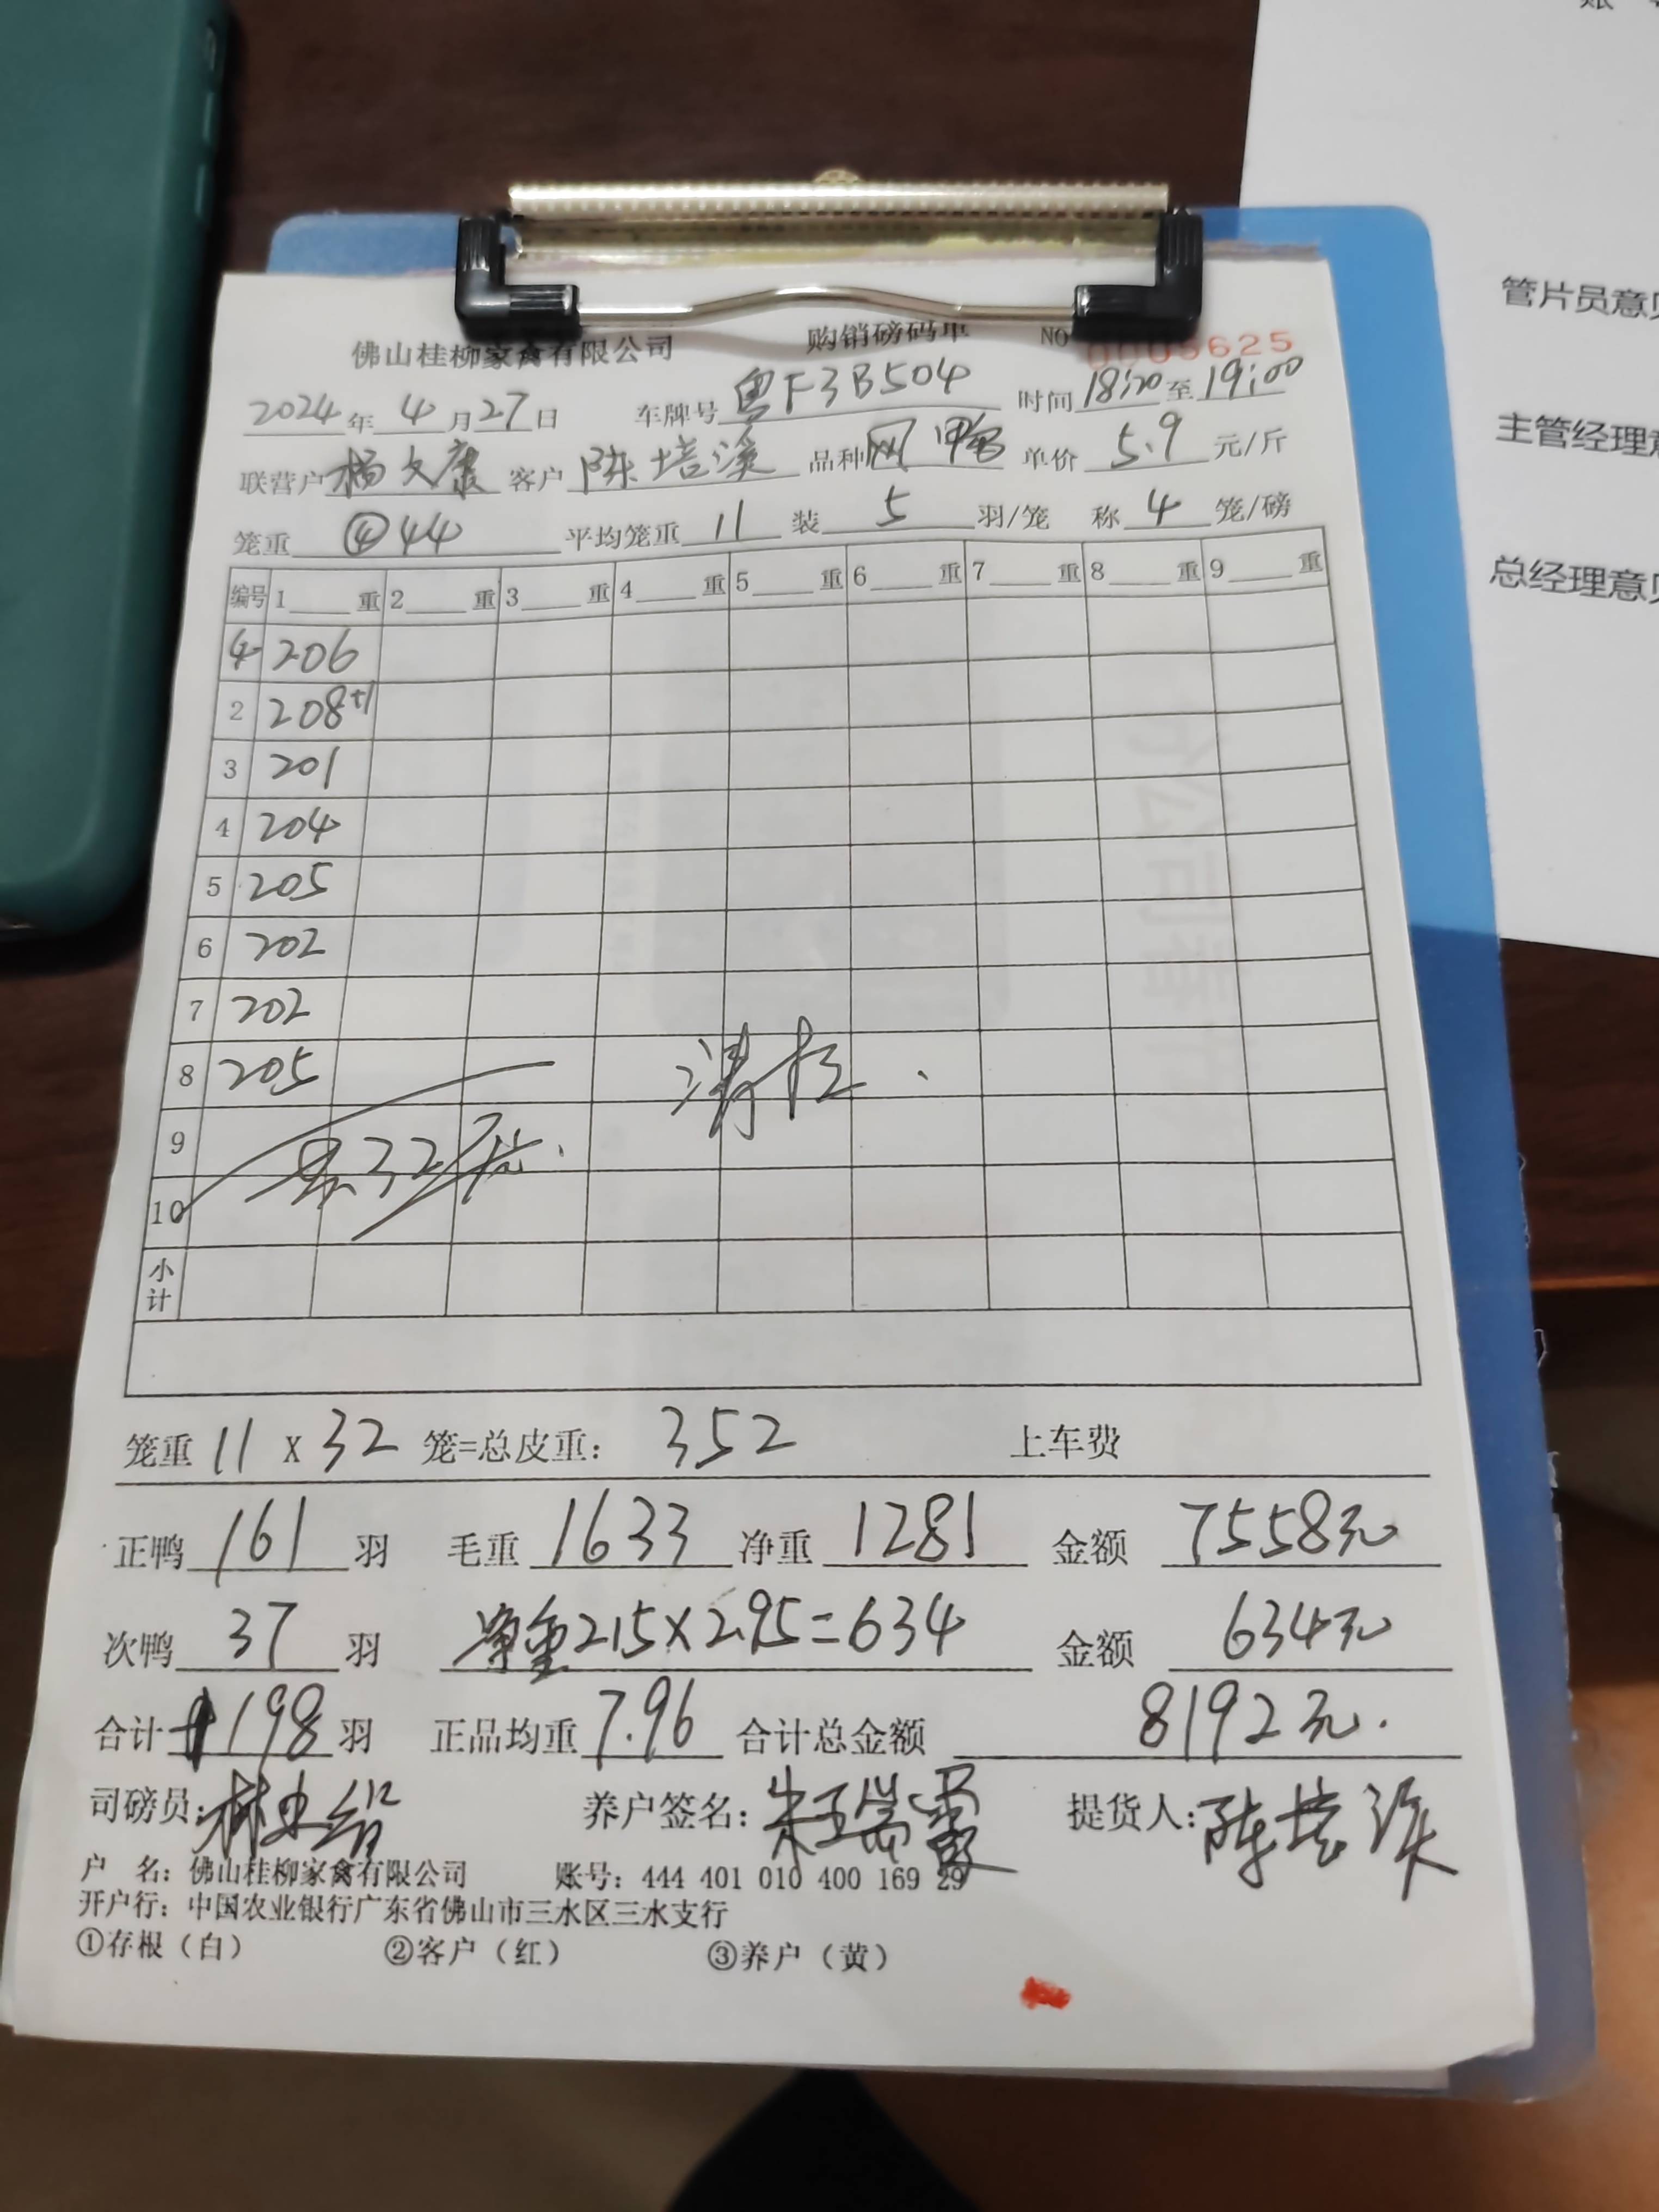 账
管片员意见
主管经理意
总经理意见
佛山桂柳家禽有限公司 购销磅码单 NO 0005625
2024年4月27日 车牌号粤F3B504 时间18:20至19:00
联营户杨文康 客户陈培溪 品种网鸭 单价5.9元/斤
笼重④44 平均笼重11 装5羽/笼 称4笼/磅
编号 1重 2重 3重 4重 5重 6重 7重 8重 9重
4 206
2 208+1
3 201
4 204
5 205
6 202
7 202
8 205
9
10 32
小计
笼重11x32笼=总皮重:352 上车费
正鸭161羽 毛重1633 净重1281 金额7558元
次鸭37羽 净重215×2.95=634 金额634元
合计198羽 正品均重7.96 合计总金额8192元.
司磅员: 养户签名:朱瑞 提货人:陈培溪
户 名:佛山桂柳家禽有限公司 账号:444 401 010 400 169 29
开户行:中国农业银行广东省佛山市三水区三水支行
①存根(白) ②客户(红) ③养户(黄)